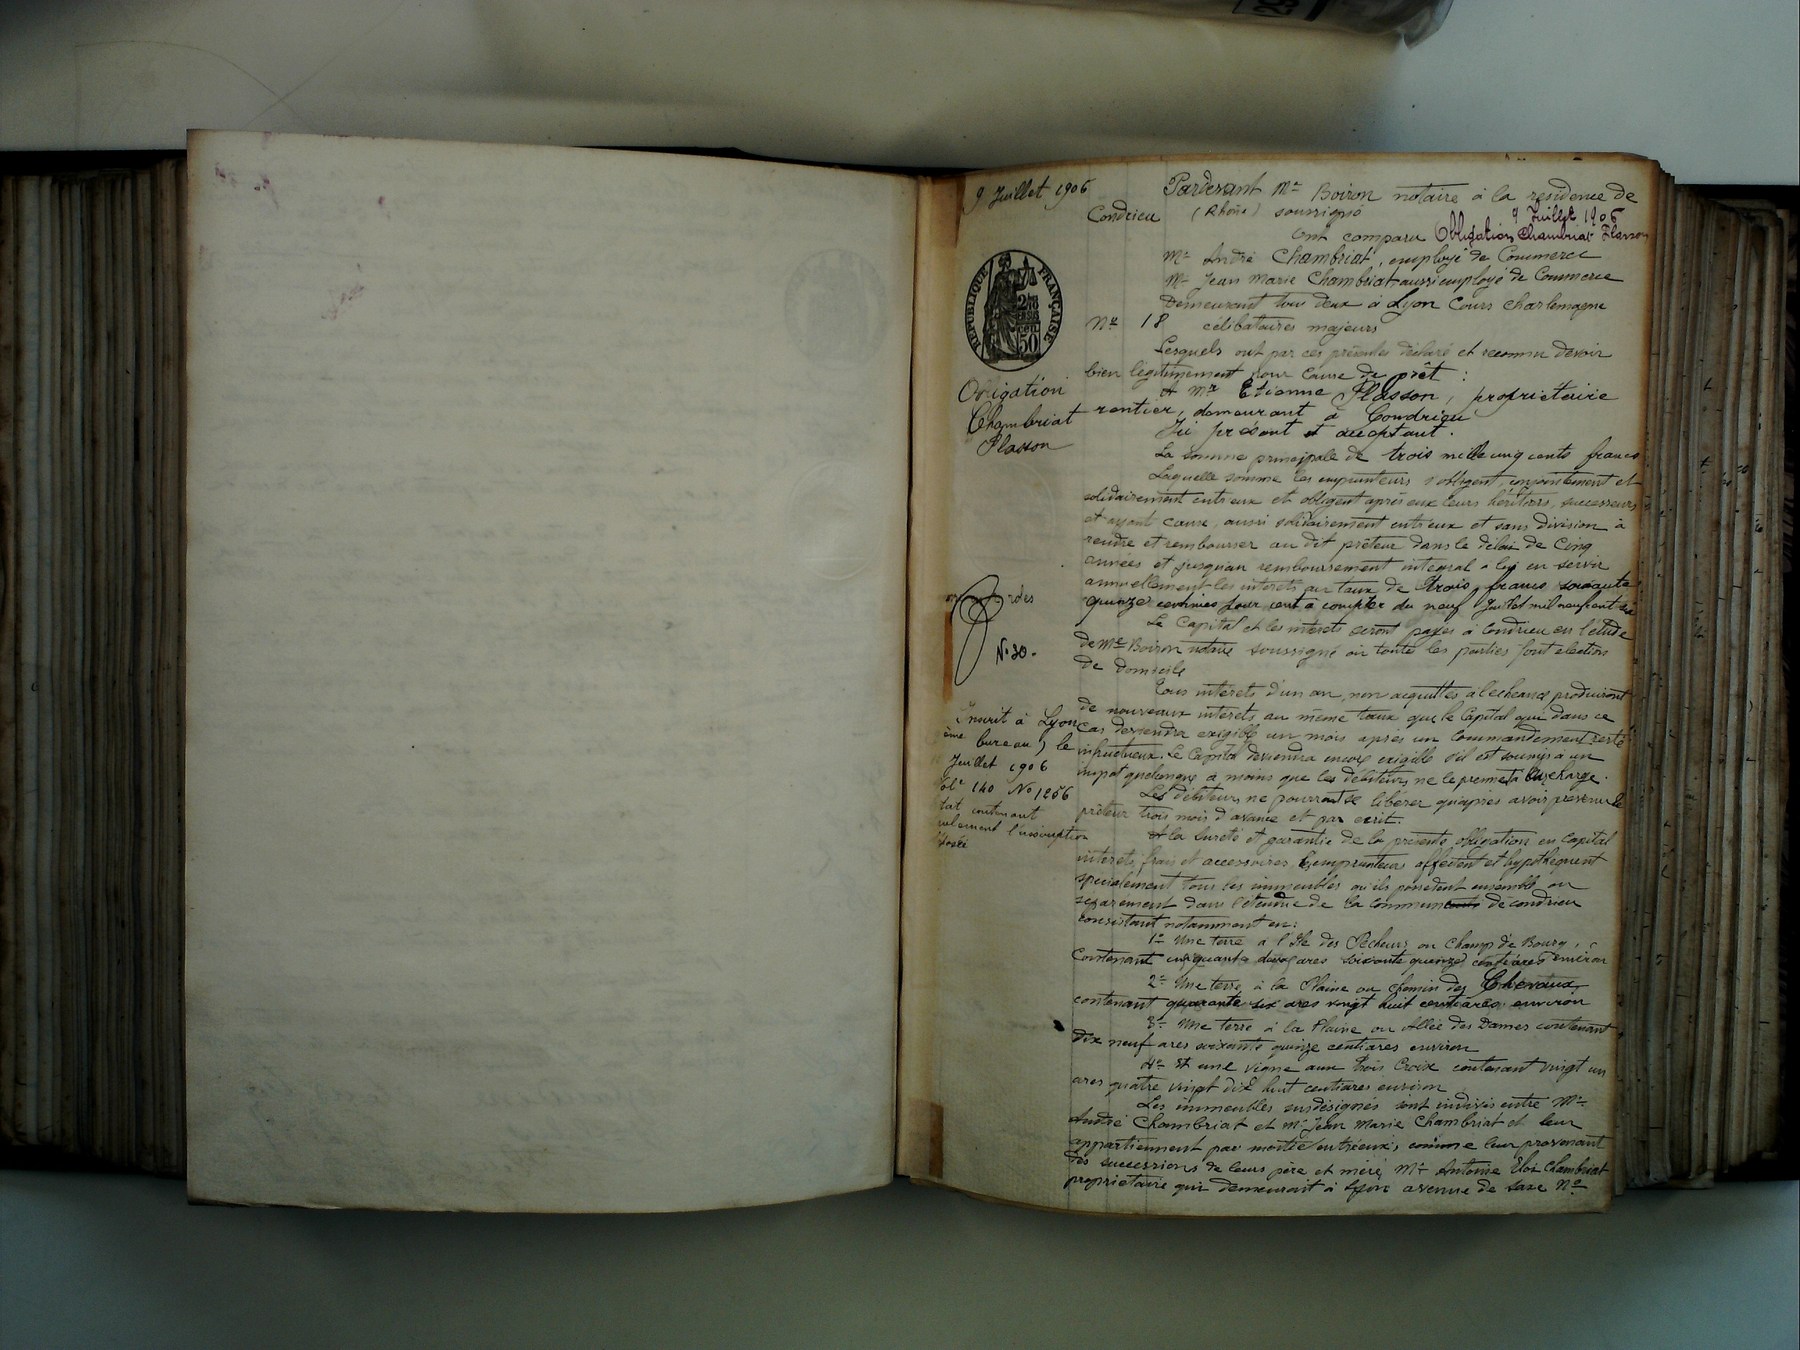 9 Juillet 1906
Pardevant Me Boiron notaire à la residence de
Condrieu (Rhône) soussigné
9 Juillet 1906
Ont comparu Obligation Chambriat Flasson
Mr André Chambriat, employé de Commerce
Mr Jean Marie Chambriat aussi employé de Commerce
Demeurant tous deux à Lyon Cours Charlemagne
No 18 célibataires majeurs
Lesquels ont par ces présentes déclaré et reconnu devoir
bien légitimement pour Cause de prêt :
A Mr Etienne Flasson, proprietaire
rentier, demeurant à Condrieu
Ici présent et acceptant.
La somme principale de trois mille cinq cents francs
Laquelle somme les emprunteurs s'obligent, conjointement et
solidairement entr'eux et obligent après eux leurs héritiers, successeurs
et ayant cause, aussi solidairement entr'eux et sans division à
rendre et rembourser au dit prêteur dans le délai de Cinq
années et jusqu'au remboursement integral à lui en servir
annuellement les interets au taux de trois francs soixante
quinze centimes pour cent à compter du neuf Juillet mil neuf cent six
Le Capital et les interets seront payés à Condrieu en l'étude
de Me Boiron notaire soussigné où toute les parties font election
de Domicile
Tous interets d'un an, non acquittés à l'echeance produiront
de nouveaux interets au même taux que le Capital qui dans ce
cas deviendra exigible un mois après un Commandement resté
infructueux. Le Capital deviendra encore exigible s'il est soumis à un
impot quelconque à moins que les débiteurs ne le prennent à leur charge.
Les débiteurs ne pourront se libérer qu'après avoir prévenu le
prêteur trois mois d'avance et par ecrit.
A la sureté et garantie de la présente obligation en capital
interets, frais et accessoires les emprunteurs affectent et hypothèquent
specialement tous les immeubles qu'ils possedent ensemble ou
séparement dans l'etendue de la commune de Condrieu
consistant notamment en:
1o Une terre à l'Ile des Pêcheurs ou Champ de Bourg,
Contenant cinquante deux ares soixante quinze centiares environ
2o Une terre à la Plaine ou chemin des Chevaux,
contenant quarante six ares vingt huit centiares environ
3o Une terre à la Plaine ou Allée des Dames contenant
dix neuf ares soixante quinze centiares environ
4o Et une vigne aux Trois Croix contenant vingt un
ares quatre vingt dix huit centiares environ
Les immeubles susdésignés sont indivis entre Mr
André Chambriat et Mr Jean Marie Chambriat et leur
appartiennent par moitié entr'eux, comme leur provenant
des successions de leurs père et mère, Mr Antoine Eloi Chambriat
propriétaire qui demeurait à Lyon avenue de Saxe No
RÉPUBLIQUE FRANÇAISE
50
Obligation
Chambriat
Flasson
No 30.
Inscrit à Lyon
bureau) le
Juillet 1906
Vol 140 No 1256
contenant
seulement l'inscription